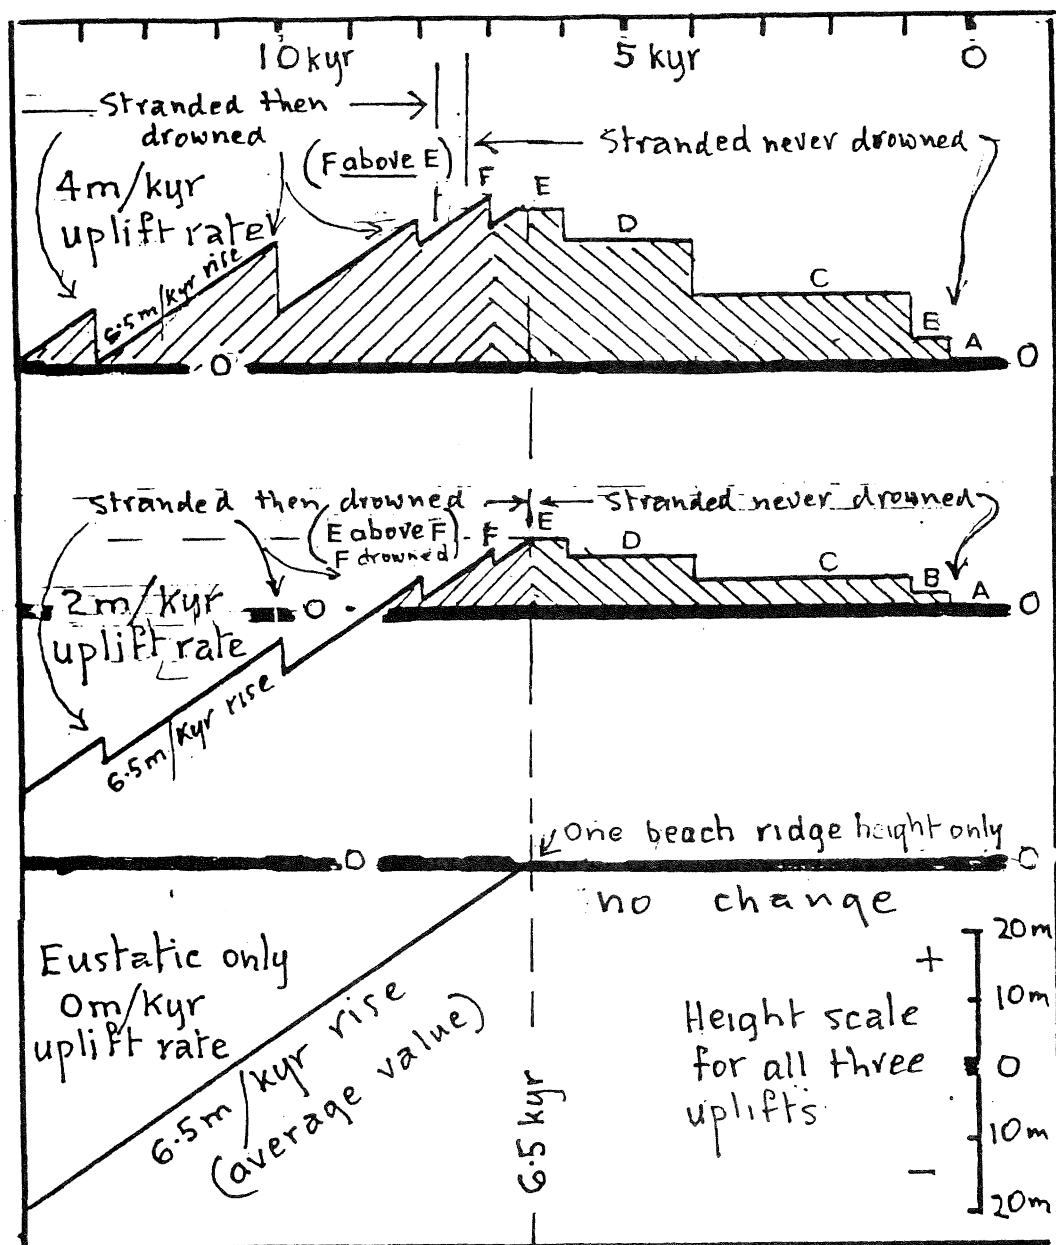 10 kyr 5 kyr 0
Stranded then
drowned
Stranded never drowned
(F above E)
4m/kyr
uplift rate
6.5m/kyr rise
F E
D
C
E
A
0 0
Stranded then drowned
Stranded never drowned
(E above F)
F drowned
F E
D
C
B
A
0 0
2m/kyr
uplift rate
6.5m/kyr rise
One beach ridge height only
0 0
no change
Eustatic only
0m/kyr
uplift rate
6.5m/kyr rise
(average value)
6.5 kyr
Height scale
for all three
uplifts
+
20m
10m
0
10m
–
20m